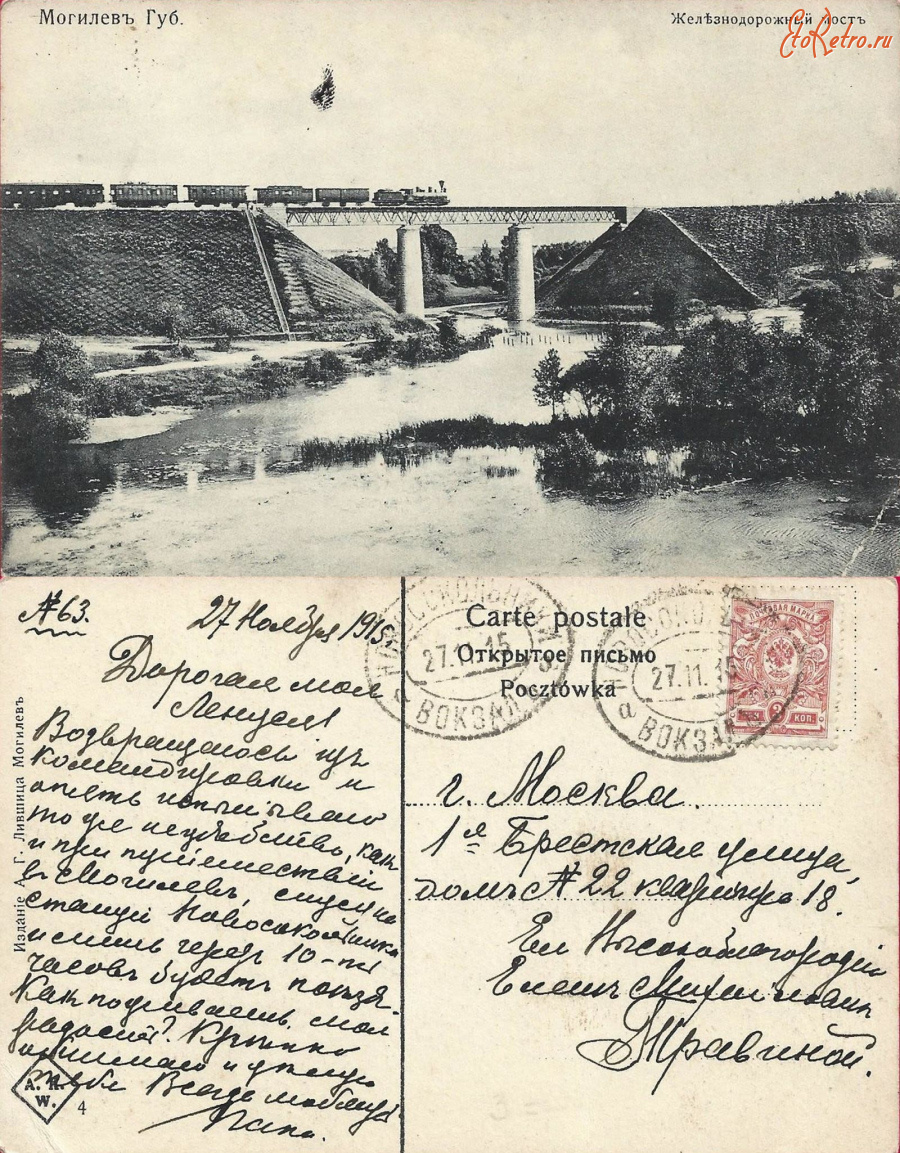 Могилевъ Губ.
Желѣзнодорожный мостъ
EtoRetro.ru
№ 63.
27 Ноября 1915
Дорогая моя
Ленуся!
Возвращаюсь изъ
командировки и
опять испытываю
тоже неудобство, какъ
и при путешествіи
въ Могилевъ, сижу на
станціи Новосокольники
и лишь черезъ 10-ть
часовъ будетъ поѣздъ.
Какъ поживаешь, моя
радость? Крѣпко
обнимаю и цѣлую
тебя Всегда любящій
Папа.
Изданіе А. Г. Лившица Могилевъ
W.
4
Carte postale
Открытое письмо
Pocztówka
НОВОСОКОЛЬНИКИ
27.11.15
а ВОКЗАЛ
27.11.15
а ВОКЗАЛ
ПОЧТОВАЯ МАРКА
3 КОП.
г. Москва.
1я Брестская улица,
домъ № 22 квартира 18.
Ея Высокоблагородію
Еленѣ Михайловнѣ
Травиной.